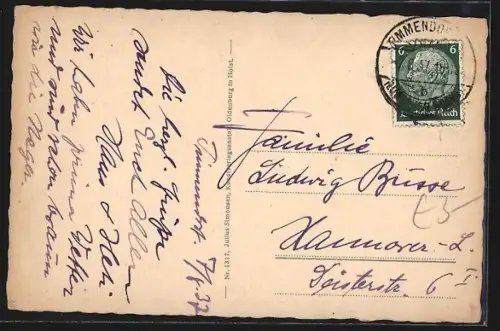 Timmendorf. 7/6 37
Die herzl. Grüße
sendet Euch Allen
Hans & Heh.
Wir haben prima Wetter
und sind schon braun
wie die Neger.
Nr. 1317, Julius Simonsen, Oldenburg in Holst.
TIMMENDORF
6 6
Deutsches Reich
Familie
Ludwig Busse
Hannover-L.
Deisterstr. 6 I
£5